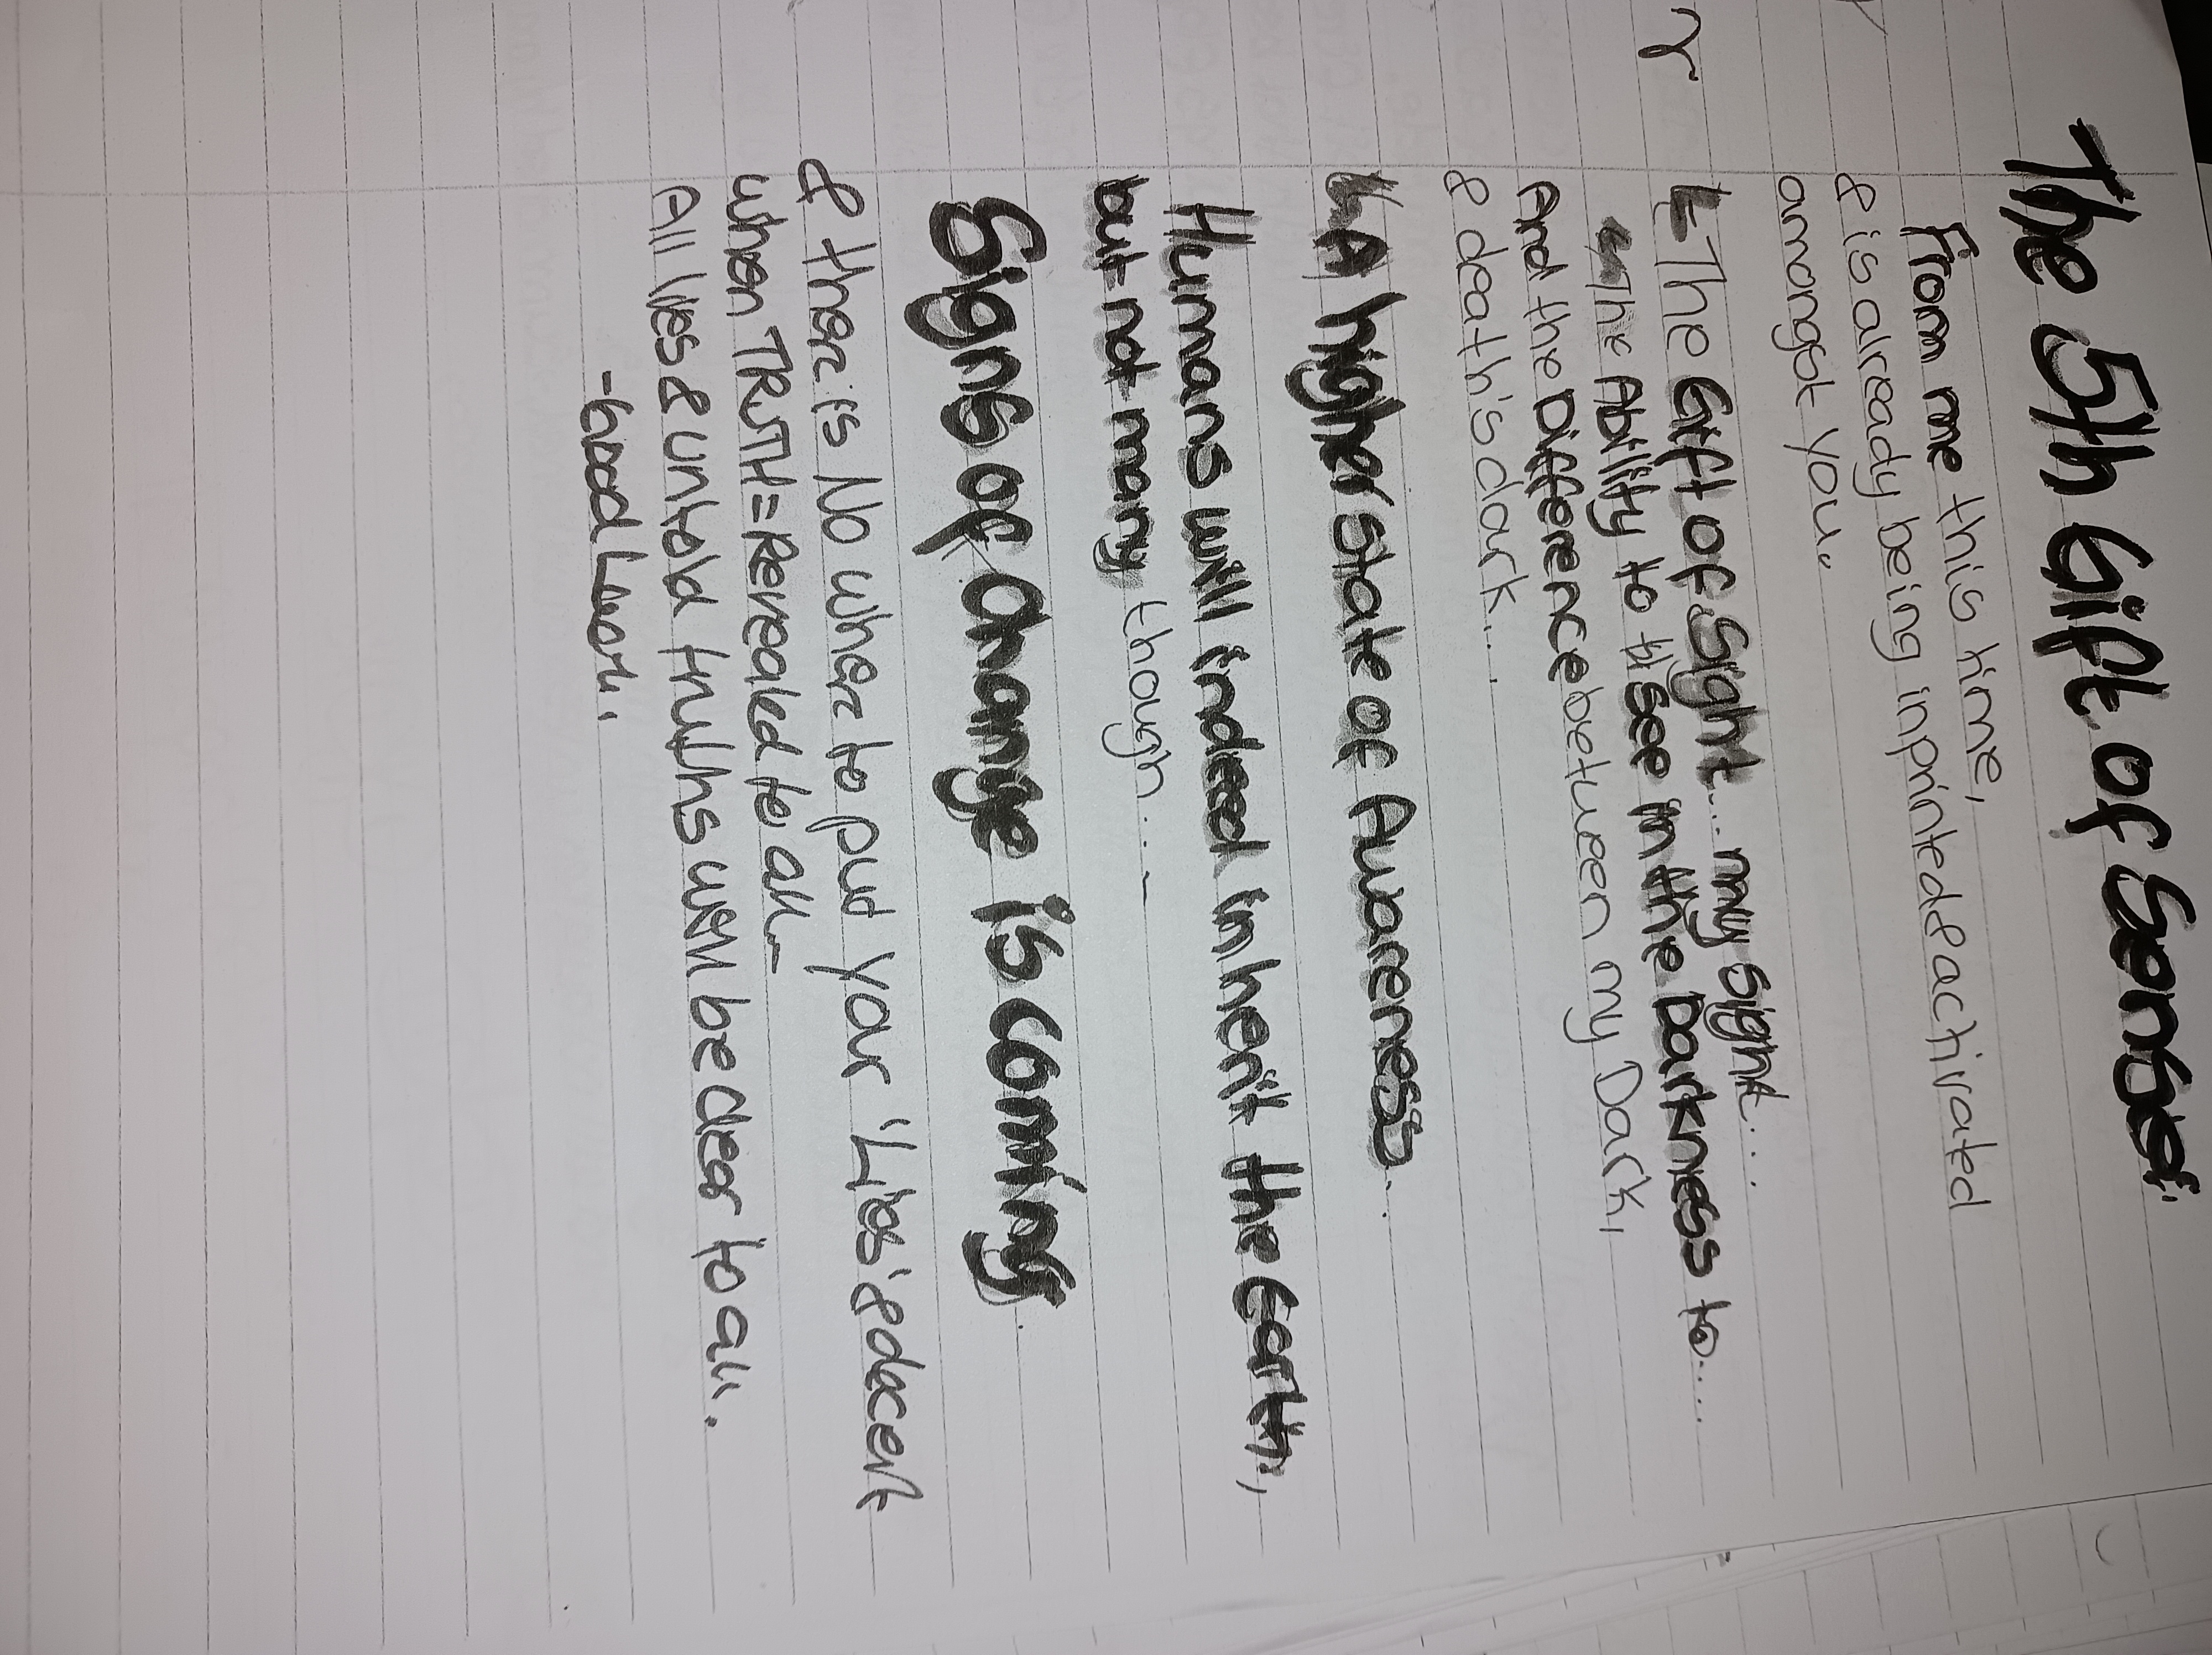 The 5th Gift of Senses.
From me this time,
& is already being inprinted & activated
amongst you.
The Gift of Sight... my sight...
The Ability to see in the Darkness to....
And the Difference between my Dark,
& death's dark....
A higher state of Awareness.
Humans will indeed inherit the Earth,
but not many though...-
Signs of change is coming
& there is No where to put your 'Lies' & deceit
when TRUTH = Revealed to all-
All lies & untold truths will be clear to all.
- Good Luck.